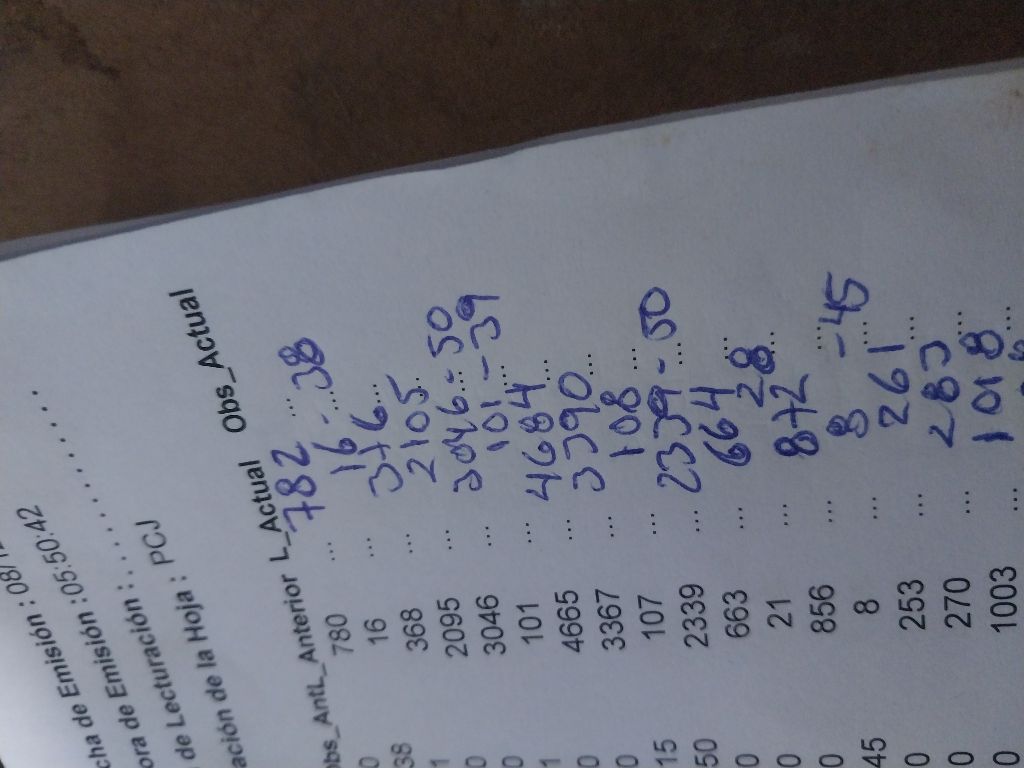 cha de Emisión : 08/1
ora de Emisión : 05:50:42
de Lecturación : . . . . . . . . . . . .
ación de la Hoja : PCJ
Obs_Ant L_Anterior L_Actual Obs_Actual
0 780 ... 782 ...
38 16 ... 16 - 38 ...
1 368 ... 376 ...
0 2095 ... 2105 ...
0 3046 ... 3046 - 50 ...
1 101 ... 101 - 39 ...
0 4665 ... 4684 ...
0 3367 ... 3390 ...
15 107 ... 108 ...
50 2339 ... 2339 - 50 ...
0 663 ... 664 ...
0 21 ... 28 ...
0 856 ... 872 ...
45 8 ... 8 - 45 ...
0 253 ... 261 ...
0 270 ... 283 ...
0 1003 ... 1018 ...